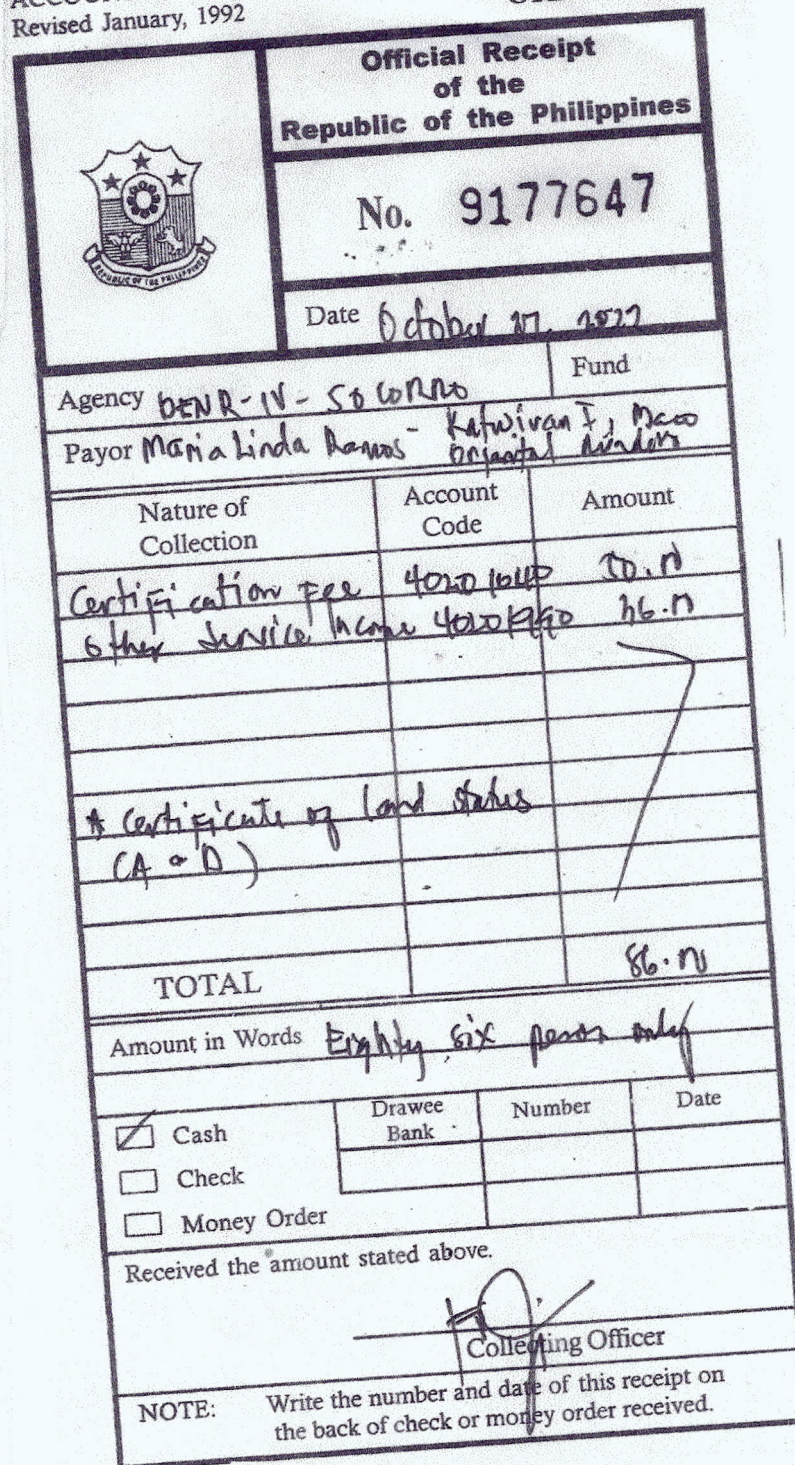 Revised January, 1992
Official Receipt
of the
Republic of the Philippines
REPUBLIC OF THE PHILIPPINES
No. 9177647
Date October 27, 2022
Agency DENR-IV-SOCORRO Fund
Payor Maria Linda Ramos - Katwiran I,
Oriental Mindoro
Nature of Collection Account Code Amount
Certification Fee 40201040 50.00
Other Service Income 40201990 36.00
* Certificate of land status
(A & D)
TOTAL 86.00
Amount in Words Eighty six pesos only
Cash Drawee Bank Number Date
Check
Money Order
Received the amount stated above.
Collecting Officer
NOTE: Write the number and date of this receipt on
the back of check or money order received.